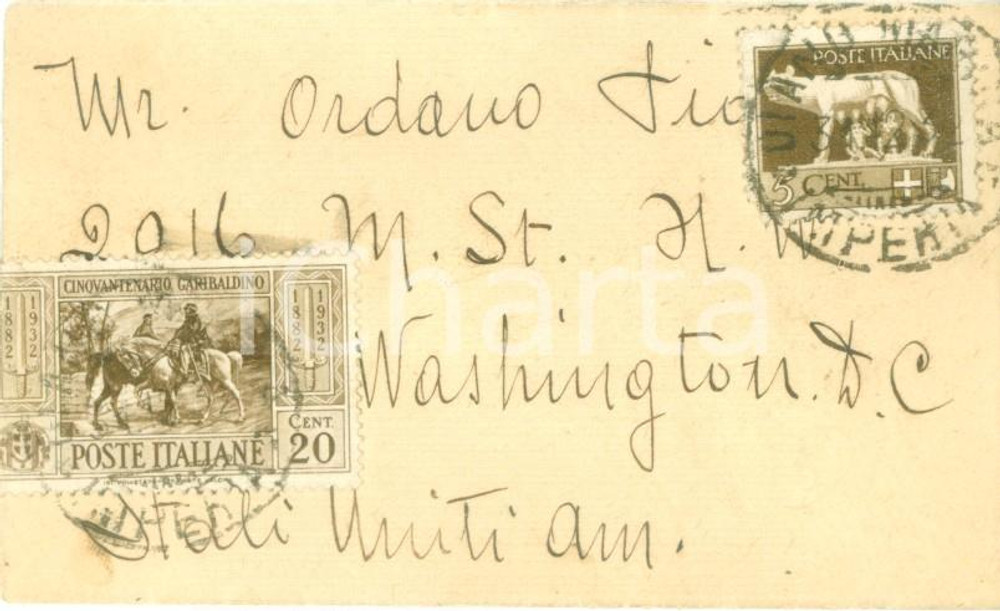 Mr. Ordano
POSTE ITALIANE
5 CENT.
2016 M. St. N. W.
CINQVANTENARIO GARIBALDINO
1882 1932 1882 1932
CENT. 20
POSTE ITALIANE
Washington. D. C
Stati Uniti Am.
iCharta